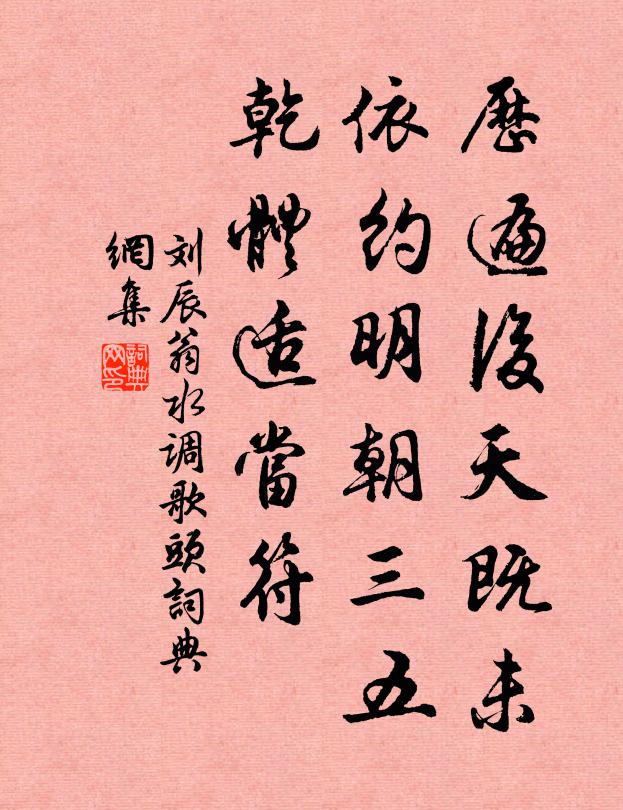 歷遍後天既未
依約明朝三五
乾體适當符
刘辰翁水调歌頭詞典
網集
詞典
网印